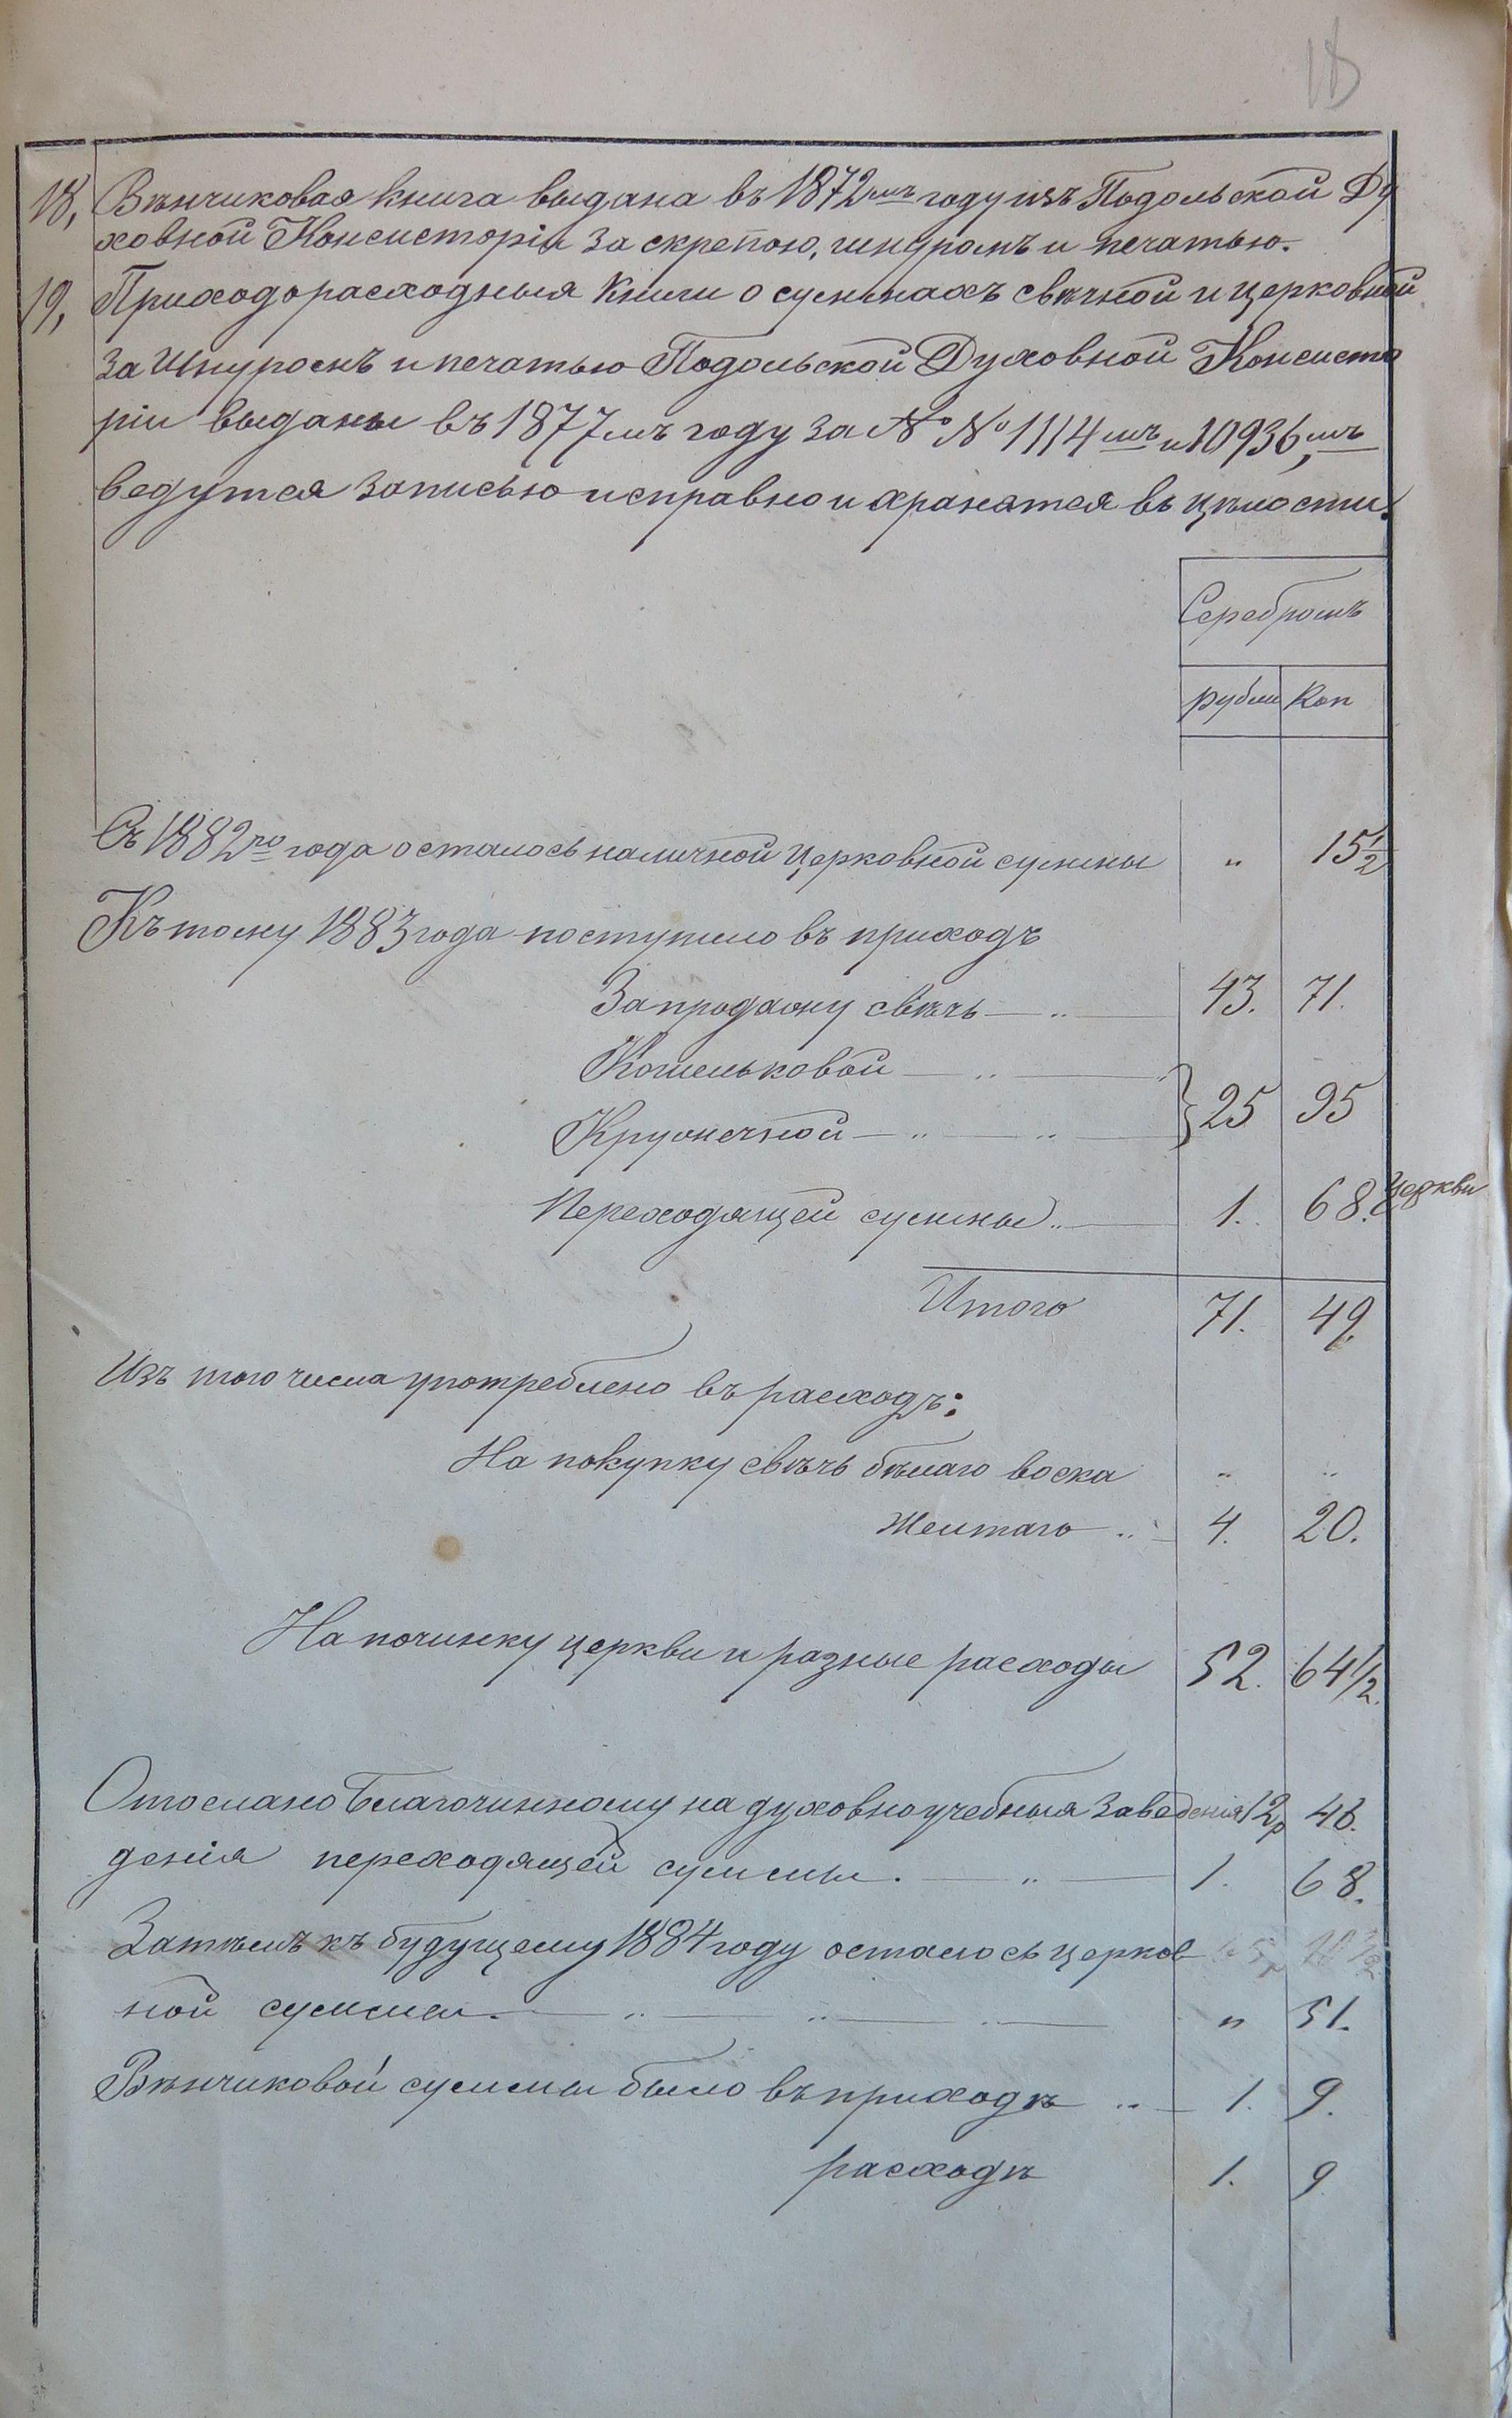 18
18, Вѣнчиковая книга выдана въ 1872мъ году изъ Подольской Ду
ховной Консисторіи за скрепою, шнуромъ и печатью.
19, Приходорасходныя книги о суммахъ свѣчной и церковной
за шнуромъ и печатью Подольской Духовной Консисто
ріи выданы въ 1877мъ году за № № 1114мъ и 10936,мъ
ведутся записью исправно и хранятся въ цѣлости.
Серебромъ
рубли Коп
Съ 1882го года осталось наличной церковной суммы " 15 1/2
Къ тому 1883 года поступило въ приходъ
За продажу свѣчь 43. 71.
Кошельковой
Кружечной } 25 95
Переходящей суммы 1. 68. Церкви
Итого 71. 49.
Изъ того числа употреблено въ расходъ:
На покупку свѣчь бѣлаго воска " "
Желтаго 4. 20.
На починку церкви и разные расходы 52. 64 1/2.
Отослано Благочинному на духовноучебныя заведенія 12р 46.
денія переходящей суммы. 1. 68.
Затѣмъ къ будущему 1884 году осталось церков
ной суммы. " 51.
Вѣнчиковой суммы было въ приходѣ 1. 9.
расходѣ 1. 9.